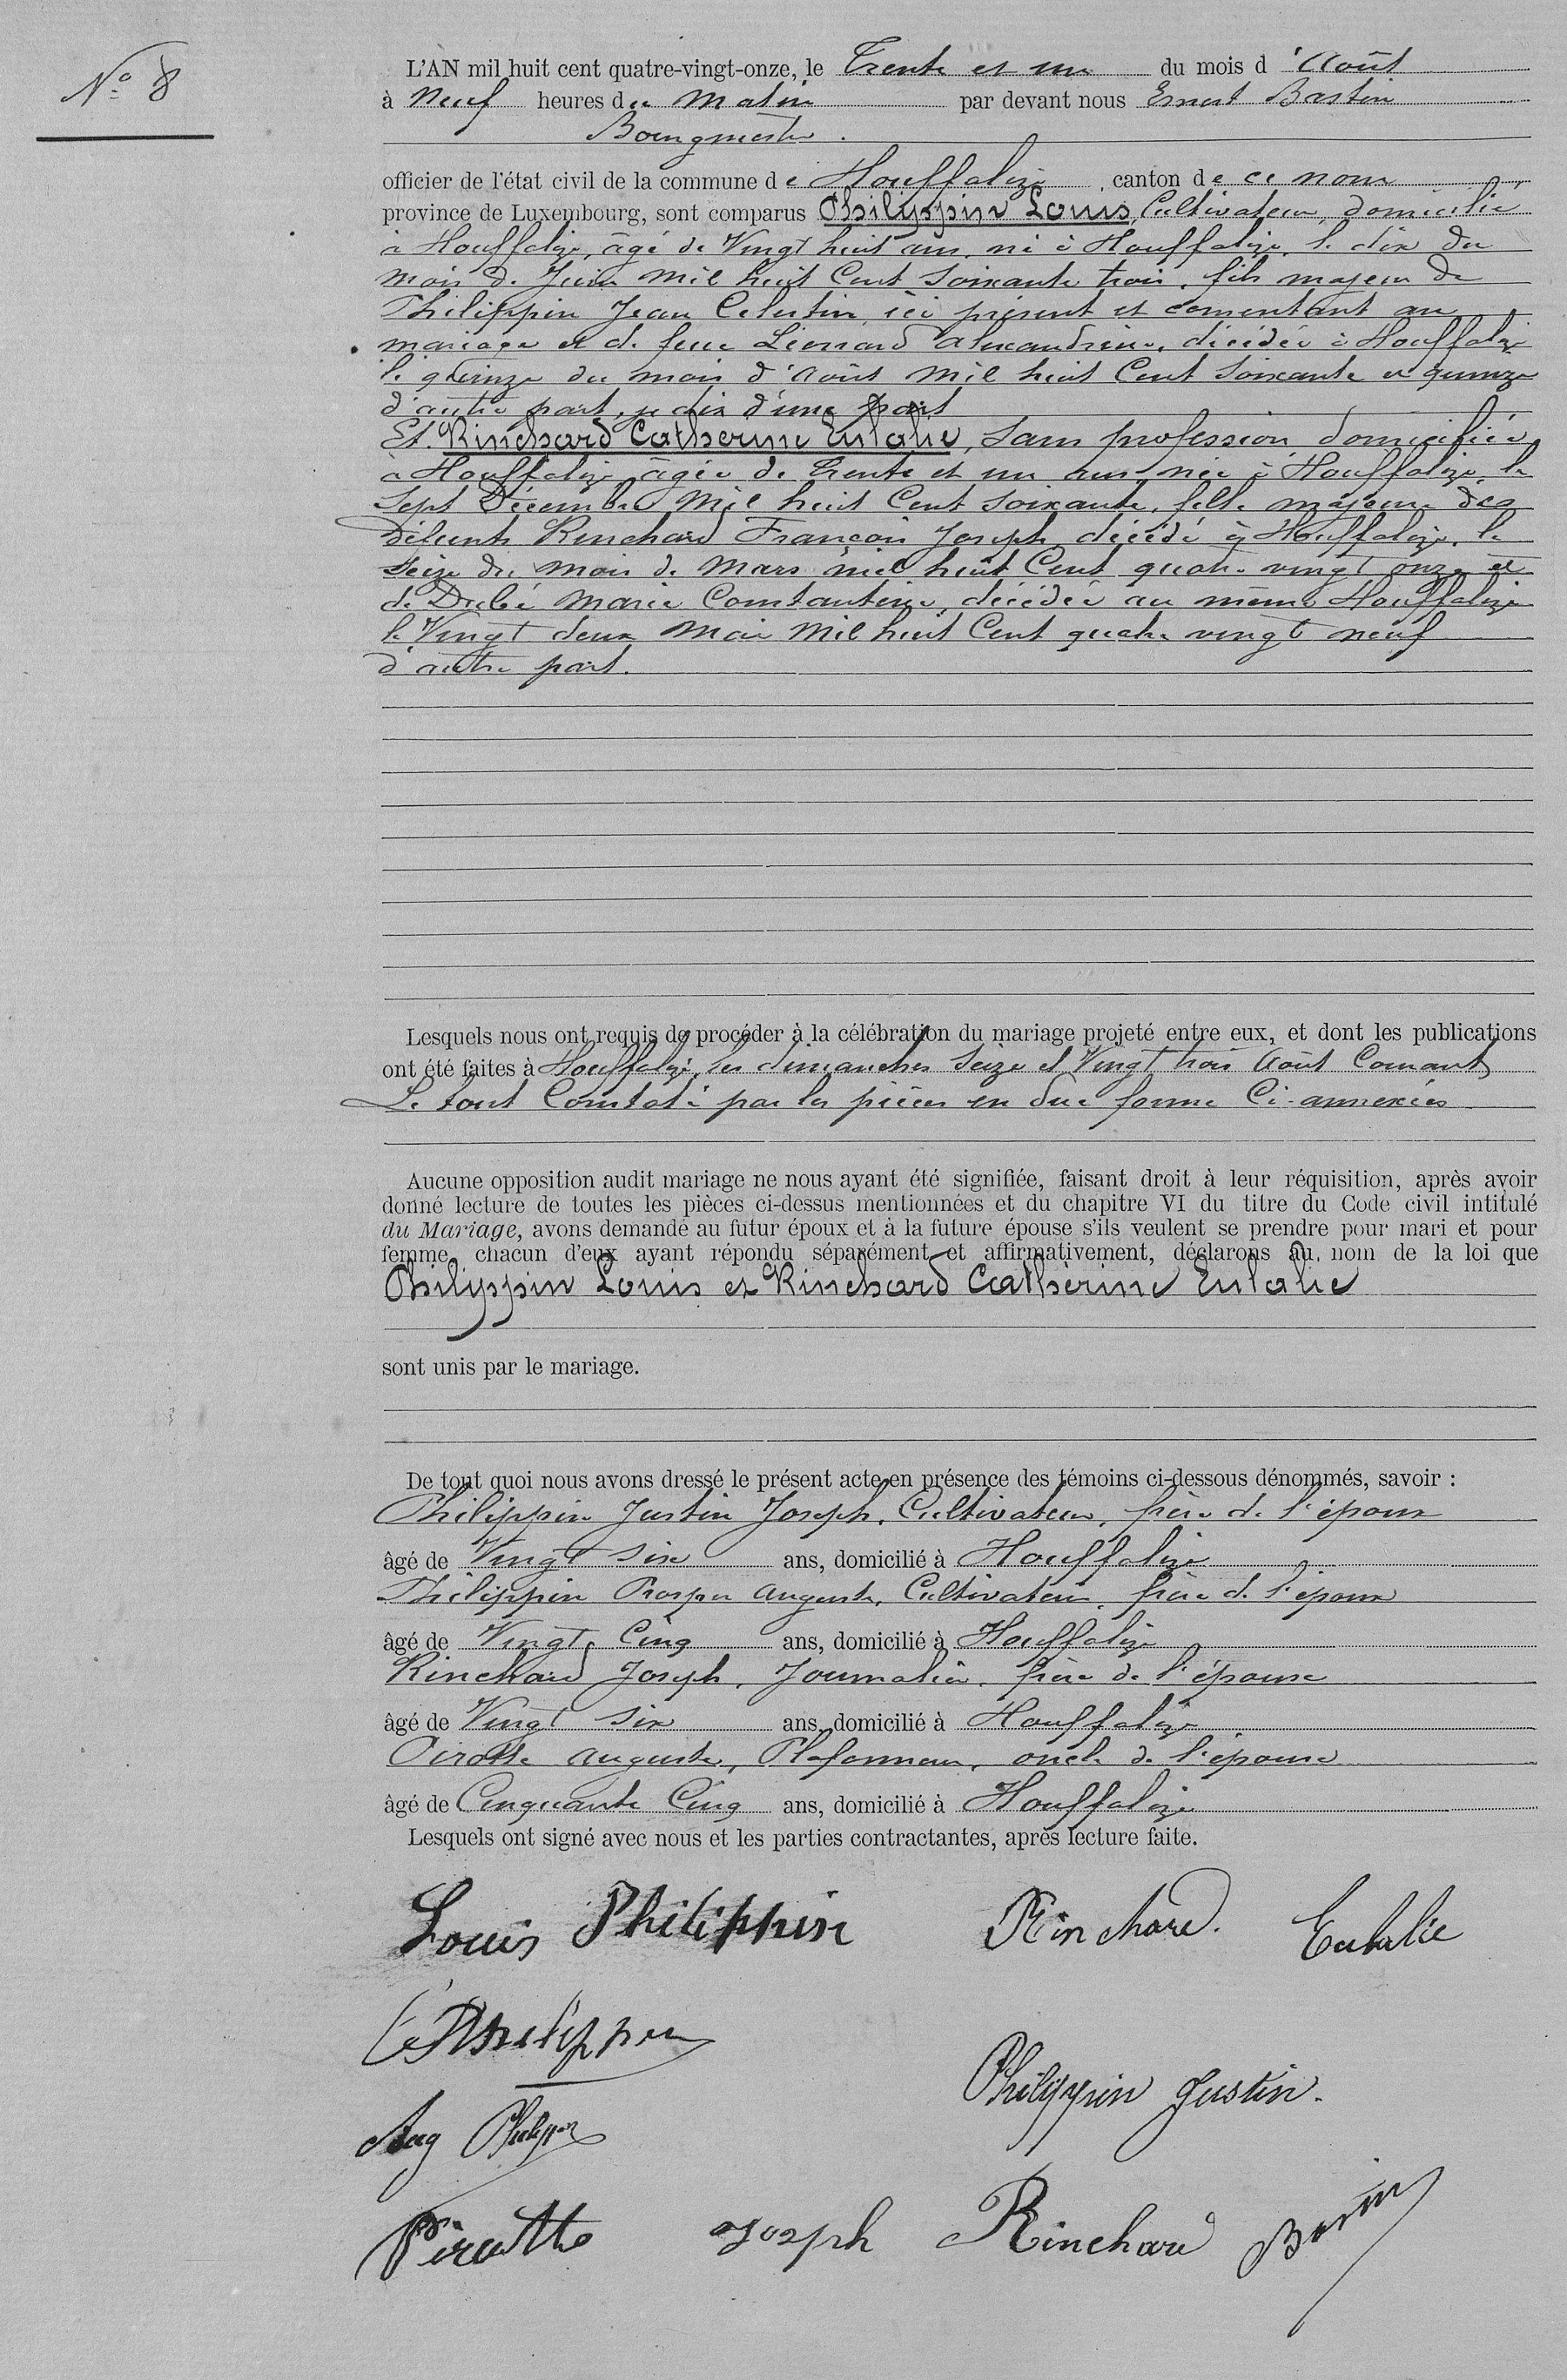 N° 8
L'AN mil huit cent quatre-vingt-onze, le Trente et un du mois d'Août
à Neuf heures du Matin par devant nous Ernest Bastin
Bourgmestre.
officier de l'état civil de la commune de Houffalize, canton de ce nom
province de Luxembourg, sont comparus Philippin Louis, Cultivateur, domicilié
à Houffalize, âgé de Vingt huit ans, né à Houffalize, le dix du
mois de Juin mil huit Cent soixante trois, fils majeur de
Philippin Jean Celestin, ici présent et consentant au
mariage et de feue Lienard Alexandrine, décédée à Houffalize
le quinze du mois d'Août mil huit Cent soixante et quinze
d'autre part, je dis d'une part
Et Rinchard Catherine Eulalie, sans profession, domiciliée
à Houffalize, âgée de Trente et un ans née à Houffalize, le
sept Décembre mil huit Cent soixante, fille majeure des
défunts Rinchard François Joseph, décédé à Houffalize, le
seize du mois de Mars mil huit Cent quatre vingt onze et
de Dubé Marie Constantine, décédée au même Houffalize
le Vingt deux Mai Mil huit Cent quatre vingt neuf
d'autre part.
Lesquels nous ont requis de procéder à la célébration du mariage projeté entre eux, et dont les publications
ont été faites à Houffalize, les dimanches Seize et Vingt trois Août Courant
Le tout Constaté par les pièces en due forme Ci-annexées
Aucune opposition audit mariage ne nous ayant été signifiée, faisant droit à leur réquisition, après avoir
donné lecture de toutes les pièces ci-dessus mentionnées et du chapitre VI du titre du Code civil intitulé
du Mariage, avons demandé au futur époux et à la future épouse s'ils veulent se prendre pour mari et pour
femme, chacun d'eux ayant répondu séparément et affirmativement, déclarons au nom de la loi que
Philippin Louis et Rinchard Catherine Eulalie
sont unis par le mariage.
De tout quoi nous avons dressé le présent acte en présence des témoins ci-dessous dénommés, savoir :
Philippin Justin Joseph, Cultivateur, frère de l'époux
âgé de Vingt six ans, domicilié à Houffalize
Philippin Prosper Auguste, Cultivateur, frère de l'époux
âgé de Vingt Cinq ans, domicilié à Houffalize
Rinchard Joseph, Journalier, frère de l'épouse
âgé de Vingt six ans, domicilié à Houffalize
Pirotte Auguste, Plafonneur, oncle de l'épouse
âgé de Cinquante Cinq ans, domicilié à Houffalize
Lesquels ont signé avec nous et les parties contractantes, après lecture faite.
Louis Philippin Rinchard. Eulalie
Philippin
Philippin Justin.
Aug Philippin
Pirotte Joseph Rinchard Bastin